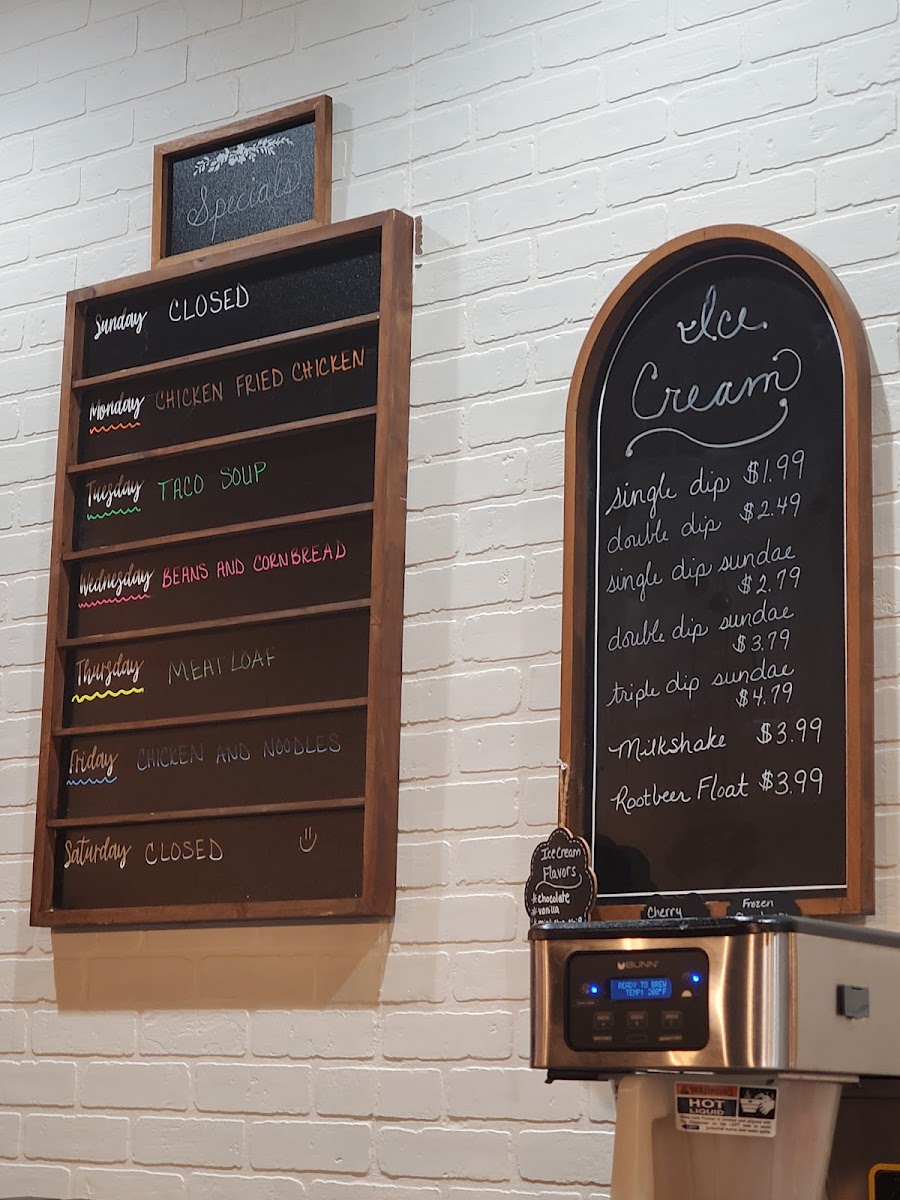 Specials
Sunday CLOSED
Monday CHICKEN FRIED CHICKEN
Tuesday TACO SOUP
Wednesday BEANS AND CORNBREAD
Thursday MEATLOAF
Friday CHICKEN AND NOODLES
Saturday CLOSED
Ice
Cream
single dip $1.99
double dip $2.49
single dip sundae
$2.79
double dip sundae
$3.79
triple dip sundae
$4.79
Milkshake $3.99
Rootbeer Float $3.99
Ice Cream
Flavors
*chocolate
*vanilla
Cherry
Frozen
BUNN
READY TO BREW
TEMP: 200°F
WARNING
HOT
LIQUID